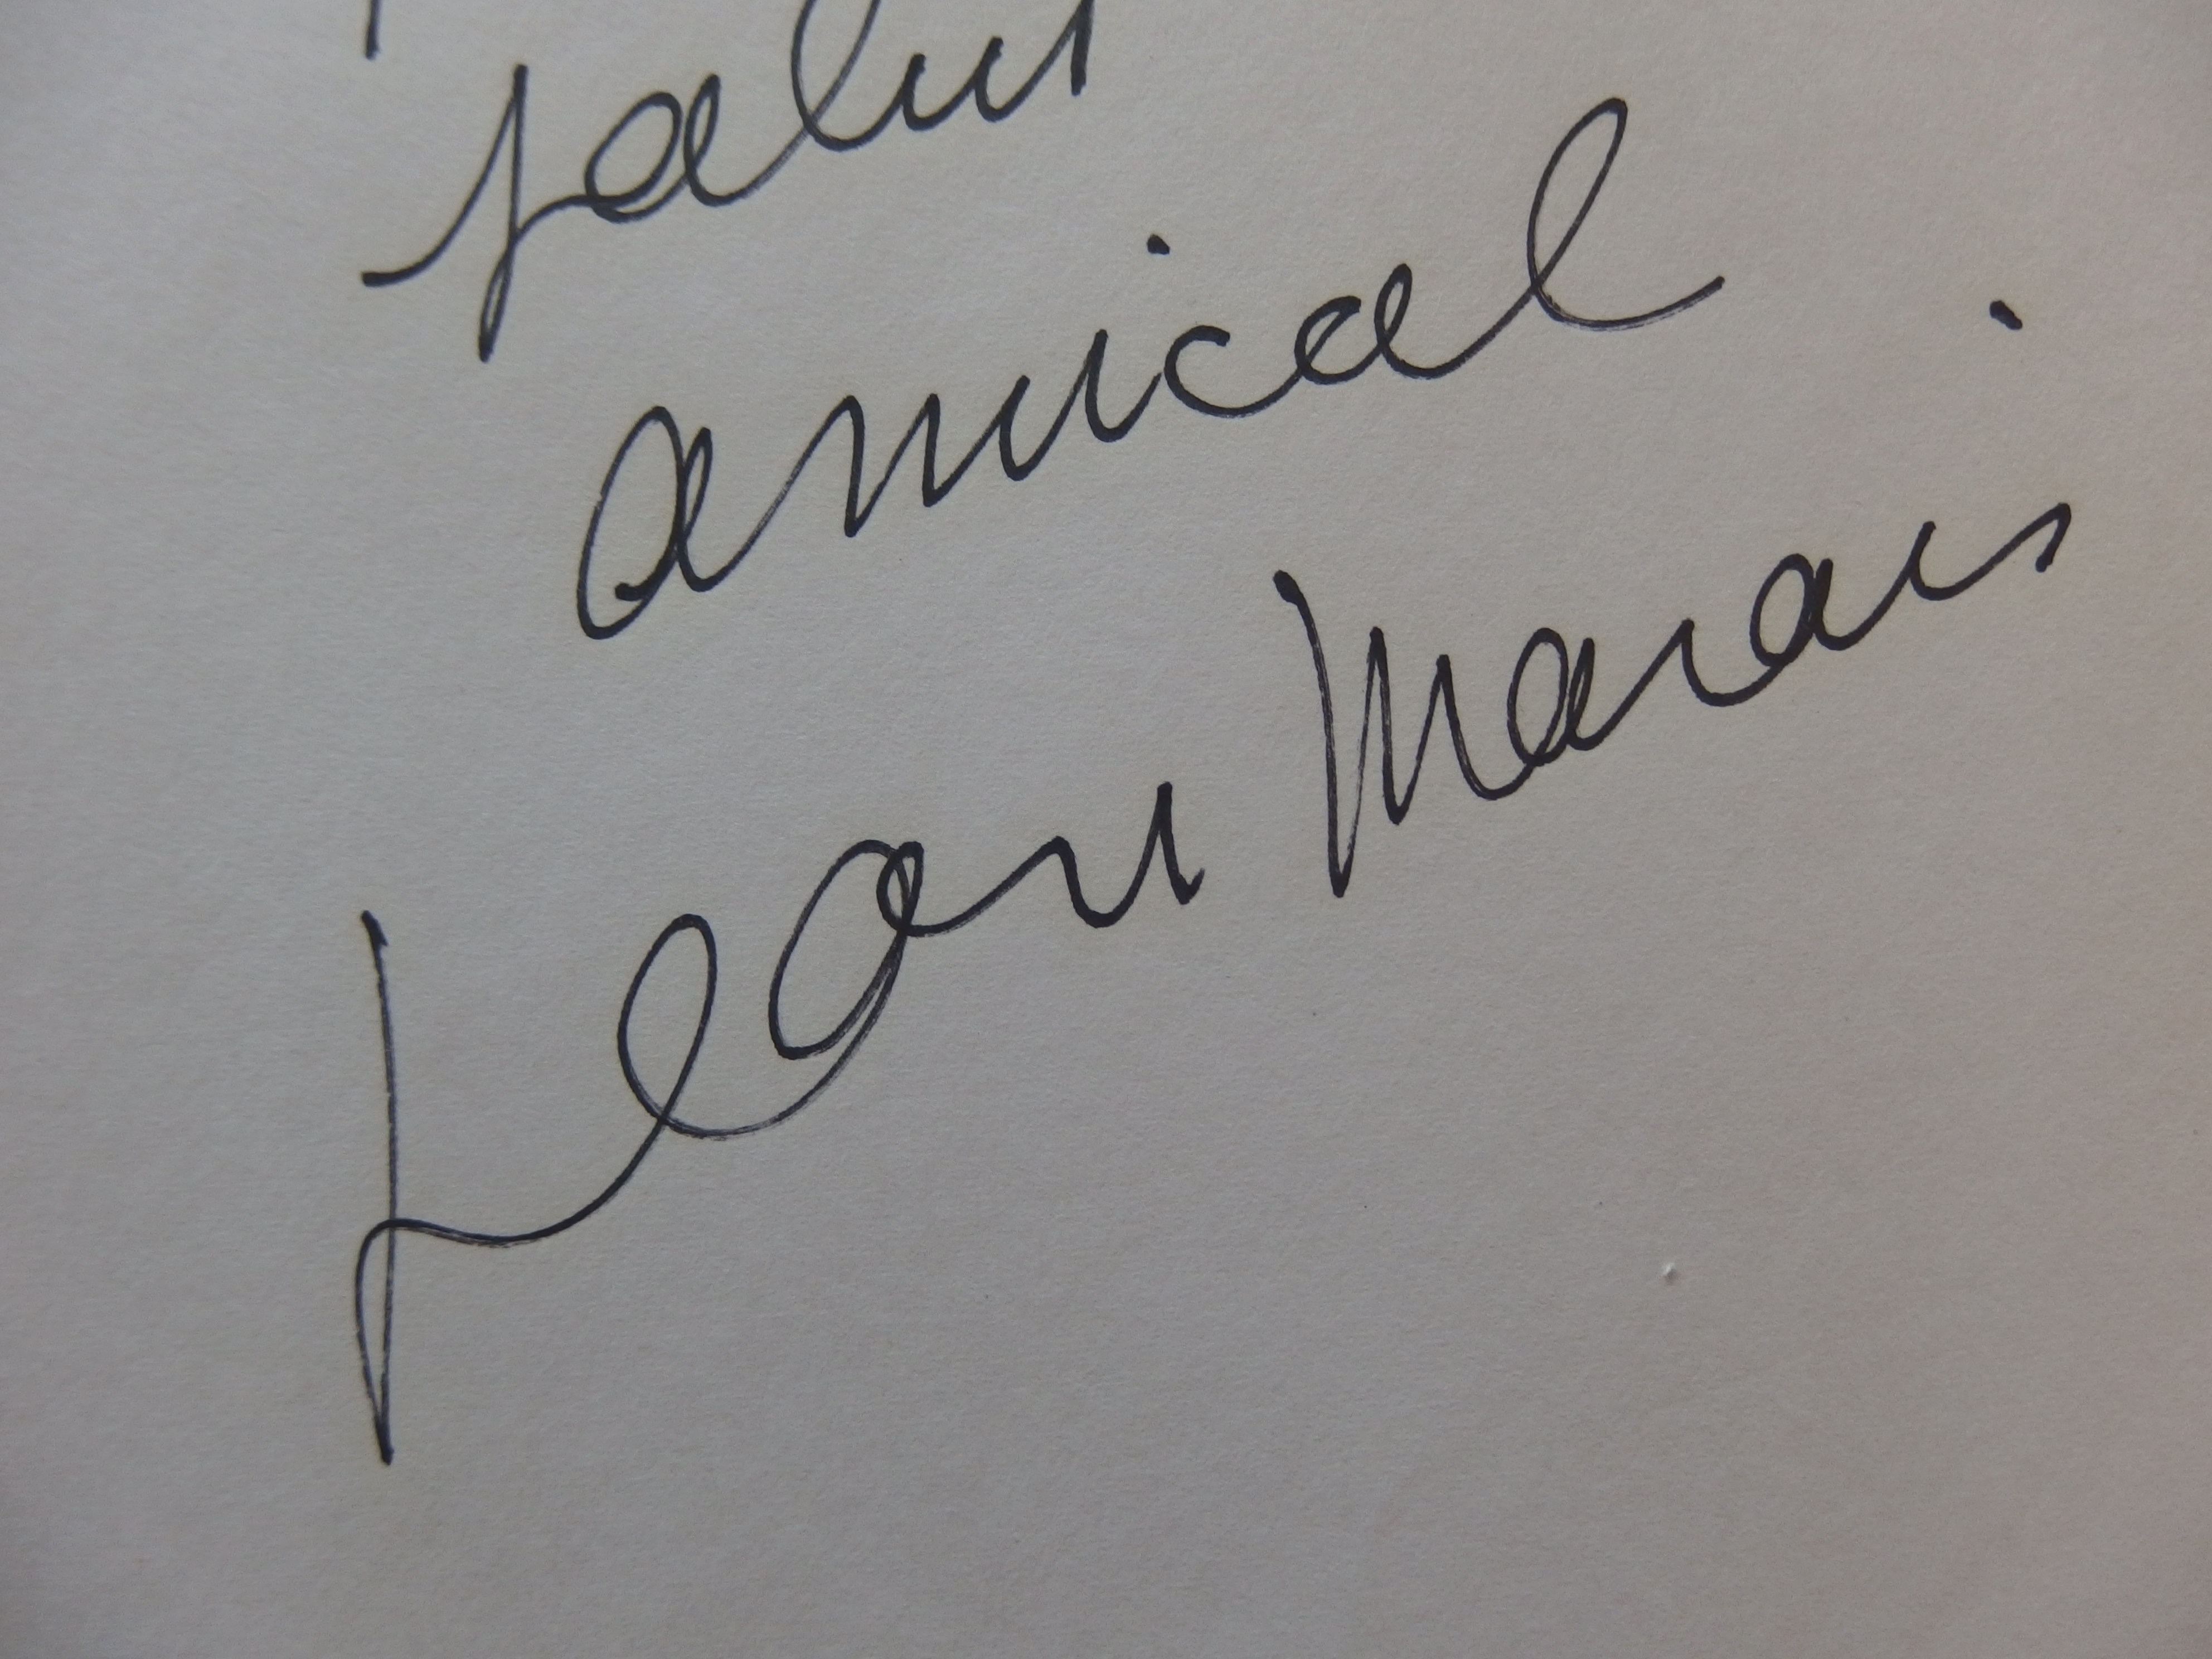 salut
amical
Jean Marais